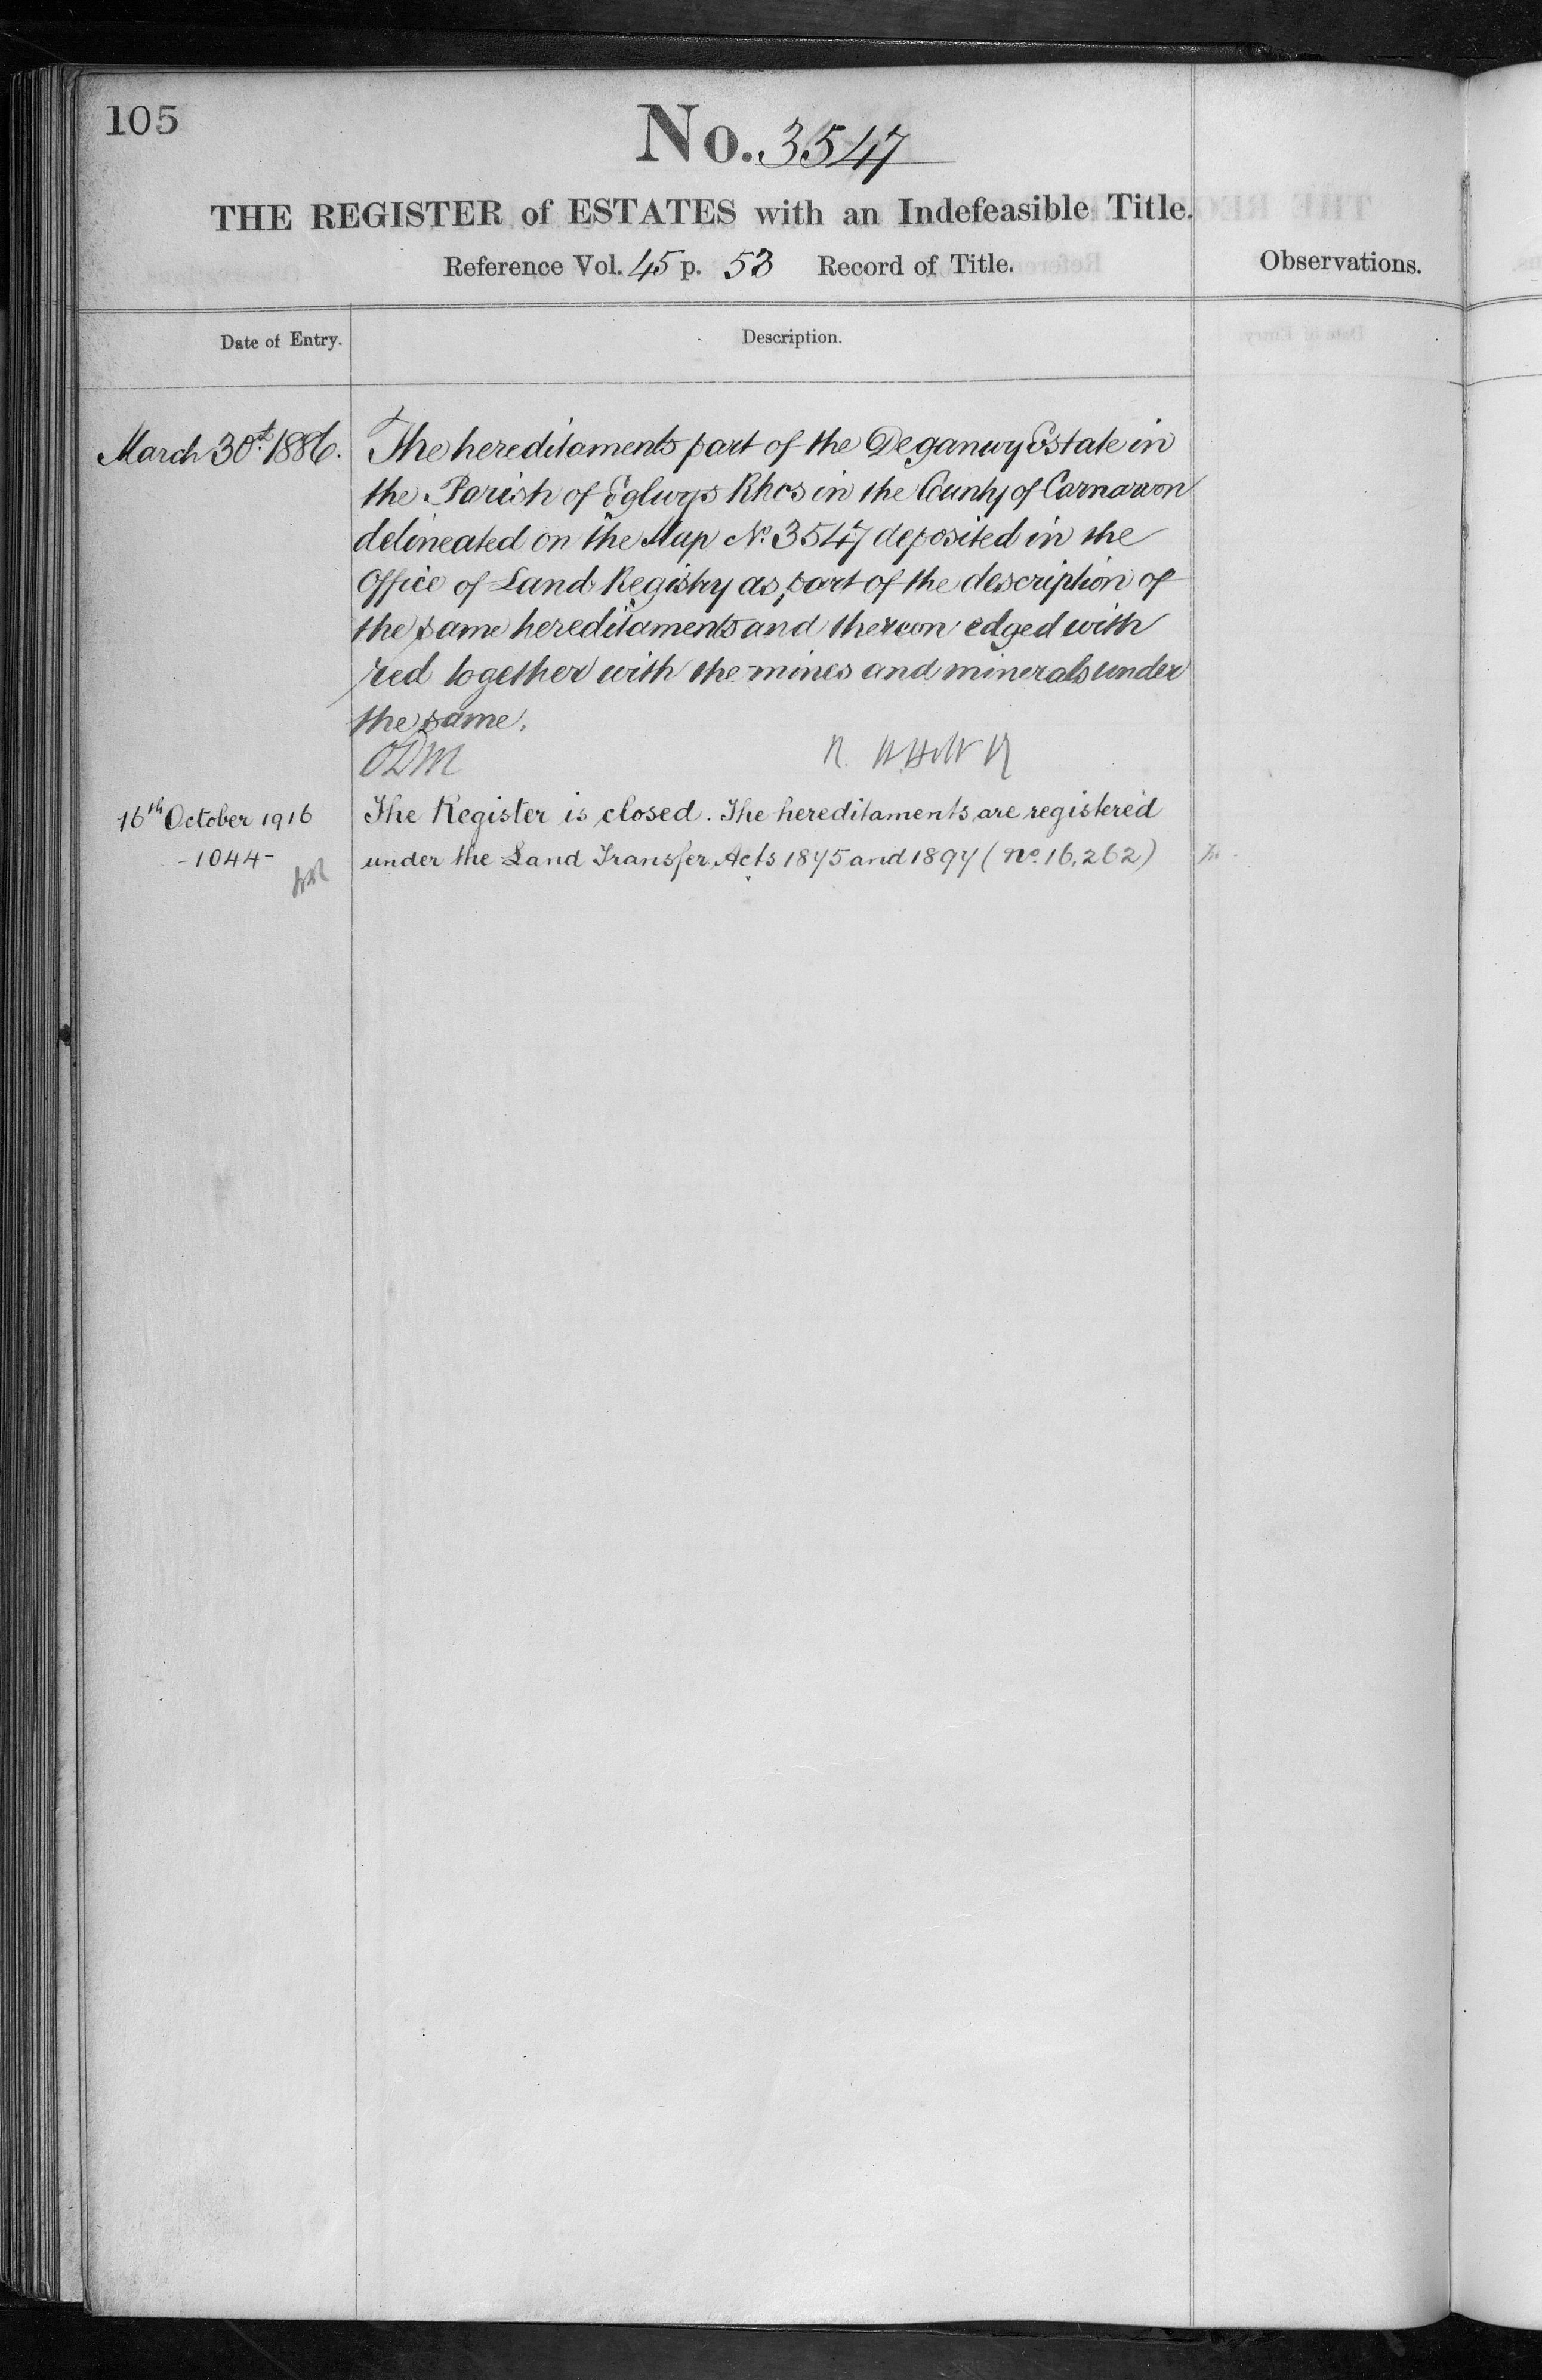 105
No. 3547
THE REGISTER of ESTATES with an Indefeasible Title.
Reference Vol. 45 p. 53 Record of Title.
Observations.
Date of Entry.
Description.
March 30th 1886.
The hereditaments part of the Deganwy Estate in
the Parish of Eglwys Rhos in the County of Carnarvon
delineated on the Map No. 3547 deposited in the
Office of Land Registry as part of the description of
the same hereditaments and thereon edged with
red together with the mines and minerals under
the same.
16th October 1916
-1044-
The Register is closed. The hereditaments are registered
under the Land Transfer Acts 1875 and 1897 (No. 16,262)